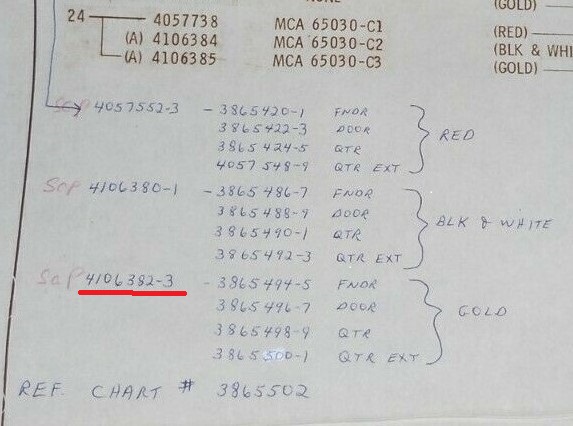 (GOLD)
24 4057738 MCA 65030-C1
(A) 4106384 MCA 65030-C2 (RED)
(A) 4106385 MCA 65030-C3 (BLK & WHI
(GOLD)
SOP 4057552-3 - 3865420-1 FNDR
3865422-3 DOOR RED
3865424-5 QTR
4057548-9 QTR EXT
SOP 4106380-1 - 3865486-7 FNDR
3865488-9 DOOR BLK & WHITE
3865490-1 QTR
3865492-3 QTR EXT
SOP 4106382-3 - 3865494-5 FNDR
3865496-7 DOOR GOLD
3865498-9 QTR
3865500-1 QTR EXT
REF. CHART # 3865502